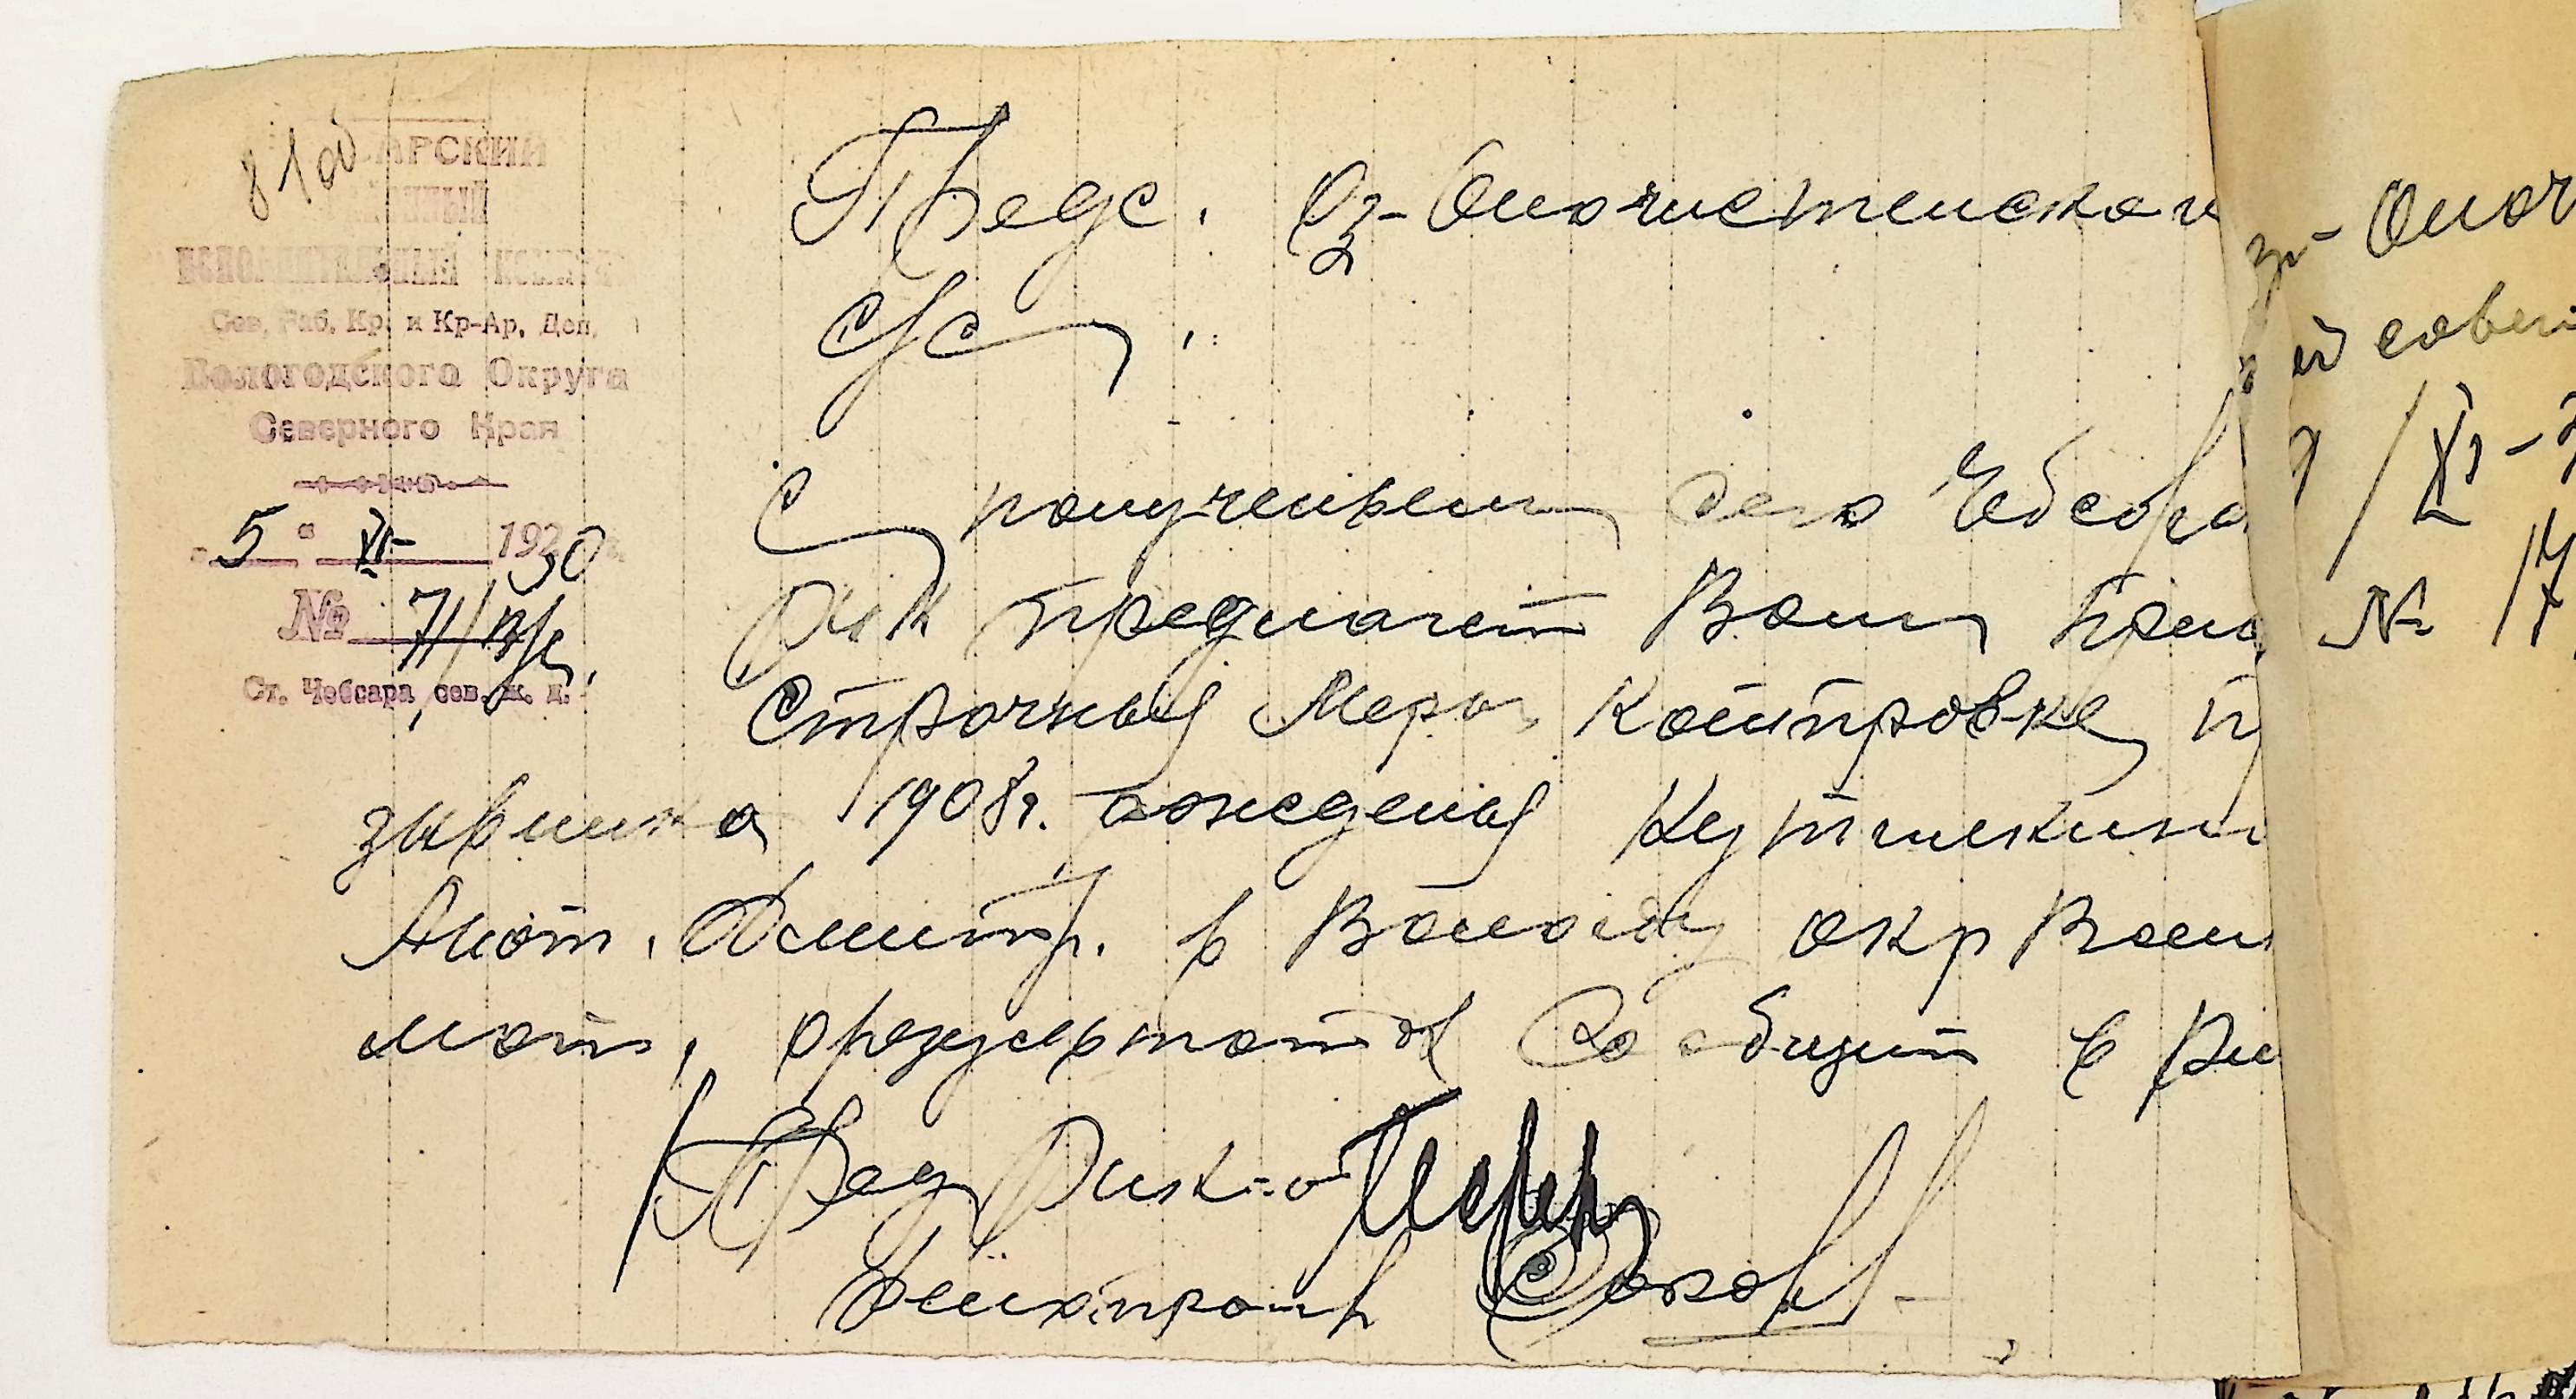 81об
АРСКИЙ
ИСПОЛНИТЕЛЬНЫЙ КОМИТЕТ
Сов. Раб. Кр. и Кр-Ар. Деп.
Вологодского Округа
Северного Края
"5" XI 1930
№ 71/
Ст. Чебсара сев. ж. д.
Предс. Оз-Оночистенског
С/С
С получением сего Чебсара
Рик предлагает Вам
Строчный Мера Контровке п
зывника 1908г. рождения Кутишкин
Анат. Дмитр. в Вологду окр Воен
мат, орезультатах Сообщит в Ри
Пред Рик-а
Делопроизв
Оноч
сове
/XI-
№ 17